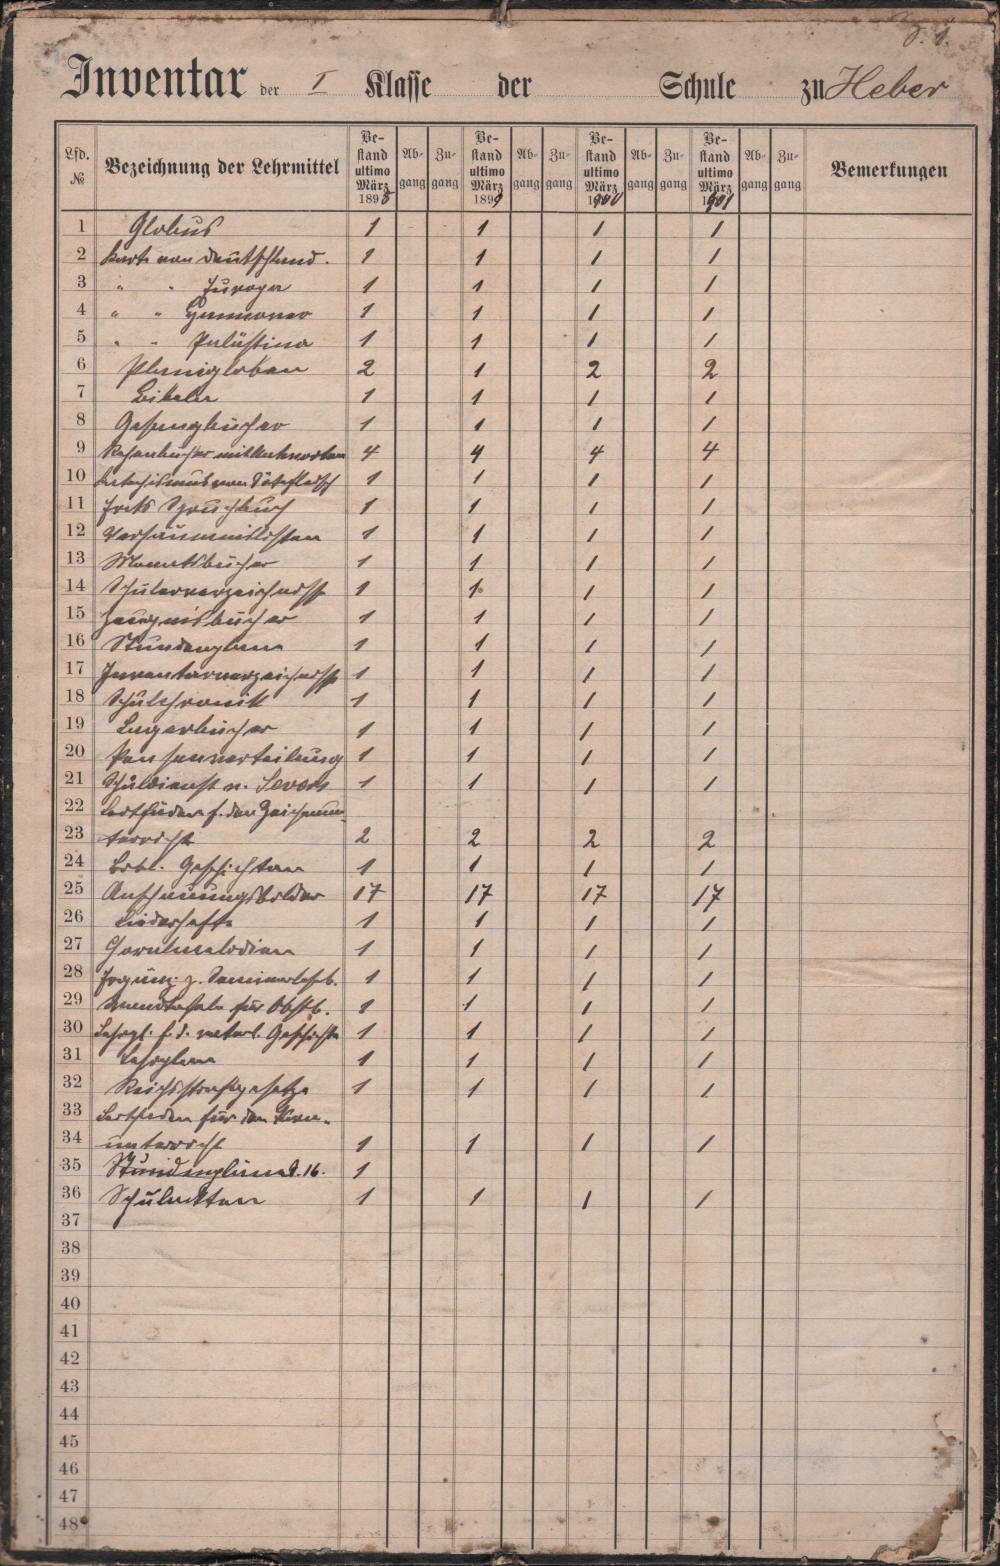 Inventar der I Klasse der Schule zu Heber
Lfd. № Bezeichnung der Lehrmittel Bestand ultimo März 1898 Abgang Zugang Bestand ultimo März 1899 Abgang Zugang Bestand ultimo März 1900 Abgang Zugang Bestand ultimo März 1901 Abgang Zugang Bemerkungen
1 Globus 1 1 1 1
2 Karte von Deutschland. 1 1 1 1
3 " " Europa 1 1 1 1
4 " " Hannover 1 1 1 1
5 " " Palästina 1 1 1 1
6 Planigloben 2 1 2 2
7 Bibeln 1 1 1 1
8 Gesangbücher 1 1 1 1
9 Rechenbücher mit Antworten 4 4 4 4
10 Katechismus von 1 1 1 1
11 Spruchbuch 1 1 1 1
12 Versäumnislisten 1 1 1 1
13 Monatsbücher 1 1 1 1
14 Schülerverzeichniss 1 1 1 1
15 Zeugnisbücher 1 1 1 1
16 Stundenplan 1 1 1 1
17 Inventarverzeichniss 1 1 1 1
18 Schulchronik 1 1 1 1
19 Lagerbücher 1 1 1 1
20 Pensenverteilung 1 1 1 1
21 Schuldienst v. 1 1 1 1
22 Leitfaden f. den Zeichenun-
23 terricht 2 2 2 2
24 Bibl. Geschichten 1 1 1 1
25 Anschauungsbilder 17 17 17 17
26 Liederhefte 1 1 1 1
27 Choralmelodien 1 1 1 1
28 Ergänz. z. Seminarleseb. 1 1 1 1
29 Wandtafeln für Obstb. 1 1 1 1
30 Lehrpl. f. d. vaterl. Geschichte 1 1 1 1
31 Lehrplan 1 1 1 1
32 Reichsstrafgesetze 1 1 1 1
33 Leitfaden für den
34 unterricht 1 1 1 1
35 Stundenpläne 16. 1
36 Schulakten 1 1 1 1
37
38
39
40
41
42
43
44
45
46
47
48